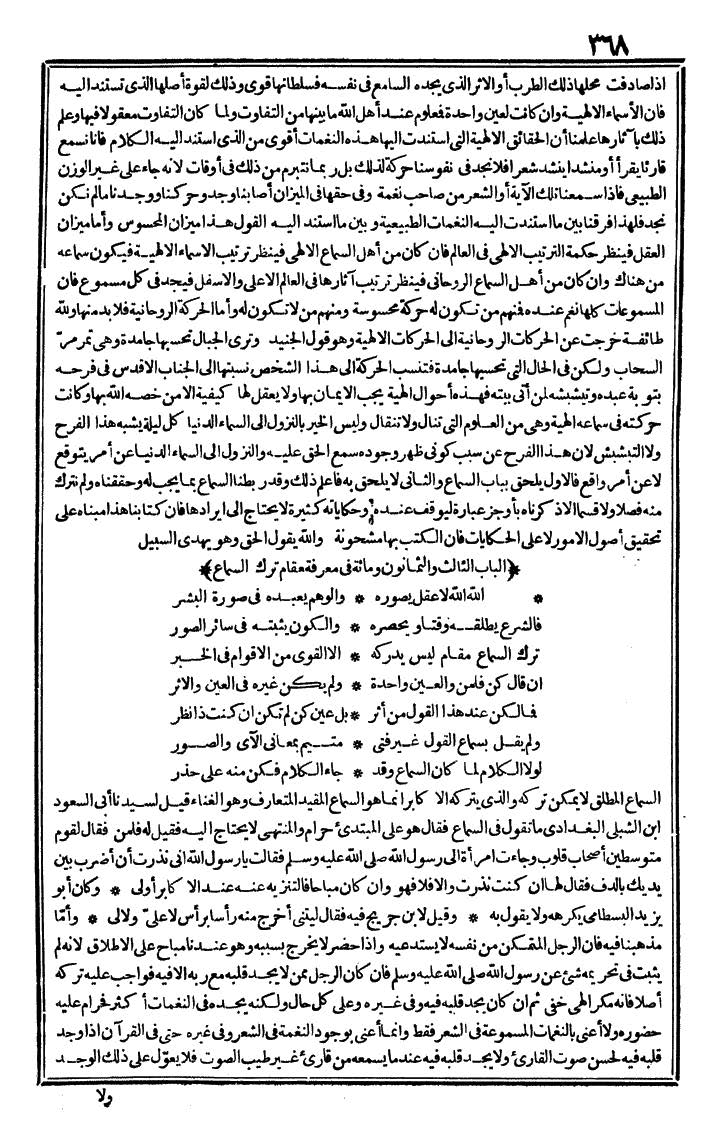 ٣٦٨
اذا صادفت محلها ذلك الطرب أو الاثر الذي يجده السامع فى نفسه فسلطانها قوى وذلك لقوة أصلها الذى تستند اليه
فان الأسماء الالهية وان كانت لعين واحدة فعلوم عند أهل الله ما بينها من التفاوت ولما كان التفاوت معقولا فيها وعلم
ذلك بآثارها علمنا أن الحقائق الالهية التى استندت اليها هذه النغمات أقوى من الذى استند اليه الكلام فانا نسمع
قارئا يقرأ أو منشدا ينشد شعرا فلا نجد فى نفوسنا حركة لذلك بل ربما نتبرم من ذلك فى أوقات لانه جاء على غير الوزن
الطبيعى فاذا سمعنا تلك الآية أو الشعر من صاحب نغمة وفى حقها فى الميزان أصابنا وجد وحركنا ووجدنا مالم نكن
نجد فلهذا فرقنا بين ما استندت اليه النغمات الطبيعية وبين ما استند اليه القول هذا ميزان المحسوس وأما ميزان
العقل فينظر حكمة الترتيب الالهى فى العالم فان كان من أهل السماع الالهى فينظر ترتيب الاسماء الالهية فيكون سماعه
من هناك وان كان من أهل السماع الروحانى فينظر ترتيب آثارها فى العالم الاعلى والاسفل فيجد فى كل مسموع فان
المسموعات كلها نغم عنده فمنهم من تكون له حركة محسوسة ومنهم من لا تكون له وأما الحركة الروحانية فلا بد منها ولله
طائفة خرجت عن الحركات الروحانية الى الحركات الالهية وهو قول الجنيد وترى الجبال تحسبها جامدة وهى تمر مر
السحاب ولكن فى الحال التى تحسبها جامدة فتنسب الحركة الى هذا الشخص نسبتها الى الجناب الاقدس فى فرحه
بتوبة عبده وتبشبشه لمن أتى بيته فهذه أحوال الهية يجب الايمان بها ولا يعقل لها كيفية الا من خصه الله بها وكانت
حركته فى سماعه الهية وهى من العلوم التى تنال ولا تنقال وليس الخبر بالنزول الى السماء الدنيا كل ليلة يشبه هذا الفرح
ولا التبشبش لان هذا الفرح عن سبب كونى ظهر وجوده سمع الحق عليه والنزول الى السماء الدنيا عن أمر يتوقع
لا عن أمر واقع فالاول يلحق بباب السماع والثانى لا يلحق به فاعلم ذلك وقد ربطنا السماع بما يجب له وحققناه ولم نترك
منه فصلا ولا قسما الا ذكرناه بأوجز عبارة ليوقف عنده وحكاياته كثيرة لا يحتاج الى ايرادها فان كتابنا هذا مبناه على
تحقيق أصول الامور لا على الحكايات فان الكتب بها مشحونة والله يقول الحق وهو يهدى السبيل
﴿الباب الثالث والثمانون ومائة فى معرفة مقام ترك السماع﴾
* الله الله لا عقل يصوره * والوهم يعبده فى صورة البشر
فالشرع يطلقه وقتا ويحصره * والكون يثبته فى سائر الصور
ترك السماع مقام ليس يدركه * الا القوى من الاقوام فى الخبر
ان قال كن فلمن والعين واحدة * ولم يكن غيره فى العين والاثر
فالكن عند هذا القول من أثر * بل عين كن لم تكن ان كنت ذا نظر
ولم يقل بسماع القول غير فتى * متيم بمعانى الآى والصور
لولا الكلام لما كان السماع وقد * جاء الكلام فكن منه على حذر
السماع المطلق لا يمكن تركه والذى يتركه الا كابر انما هو السماع المقيد المتعارف وهو الغناء قيل لسيدنا أبى السعود
ابن الشبلى البغدادى ما تقول فى السماع فقال هو على المبتدئ حرام والمنتهى لا يحتاج اليه فقيل له فلمن فقال لقوم
متوسطين أصحاب قلوب وجاءت امرأة الى رسول الله صلى الله عليه وسلم فقالت يا رسول الله انى نذرت أن أضرب بين
يديك بالدف فقال لها ان كنت نذرت والا فلا فهو وان كان مباحا فالتنزيه عنه عند الا كابر أولى * وكان أبو
يزيد البسطامى يكرهه ولا يقول به * وقيل لابن جريج فيه فقال ليتنى أخرج منه رأسا برأس لا على ولالى * وأما
مذهبنا فيه فان الرجل المتمكن من نفسه لا يستدعيه واذا حضر لا يخرج بسببه وهو عندنا مباح على الاطلاق لانه لم
يثبت فى تحريمه شئ عن رسول الله صلى الله عليه وسلم فان كان الرجل ممن لا يجد قلبه مع ربه الا فيه فواجب عليه تركه
أصلا فانه مكر الهى خفى ثم ان كان يجد قلبه فيه وفى غيره وعلى كل حال ولكنه يجده فى النغمات أكثر فحرام عليه
حضوره ولا أعنى بالنغمات المسموعة فى الشعر فقط وانما أعنى بوجود النغمة فى الشعر وفى غيره حتى فى القرآن اذا وجد
قلبه فيه لحسن صوت القارئ ولا يجد قلبه فيه عند ما يسمعه من قارئ غير طيب الصوت فلا يعول على ذلك الوجد
ولا